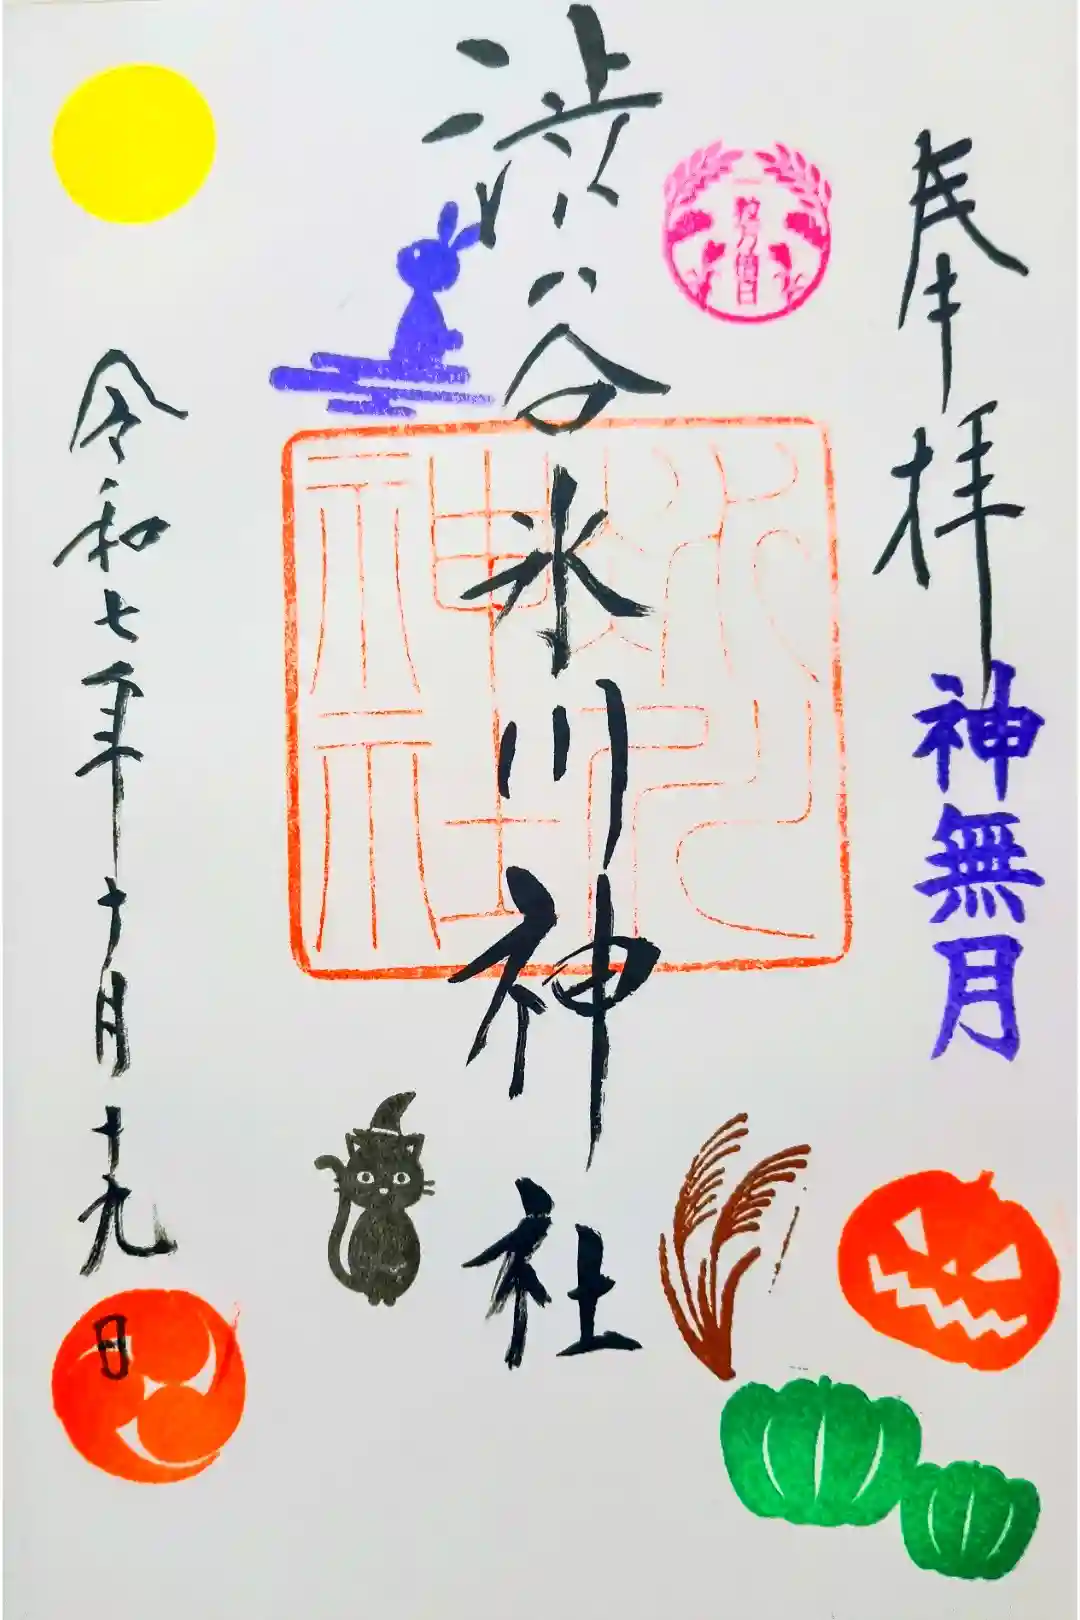 奉拝
神無月
一粒万倍日
渋谷氷川神社
氷川神社
令和七年十月十九日